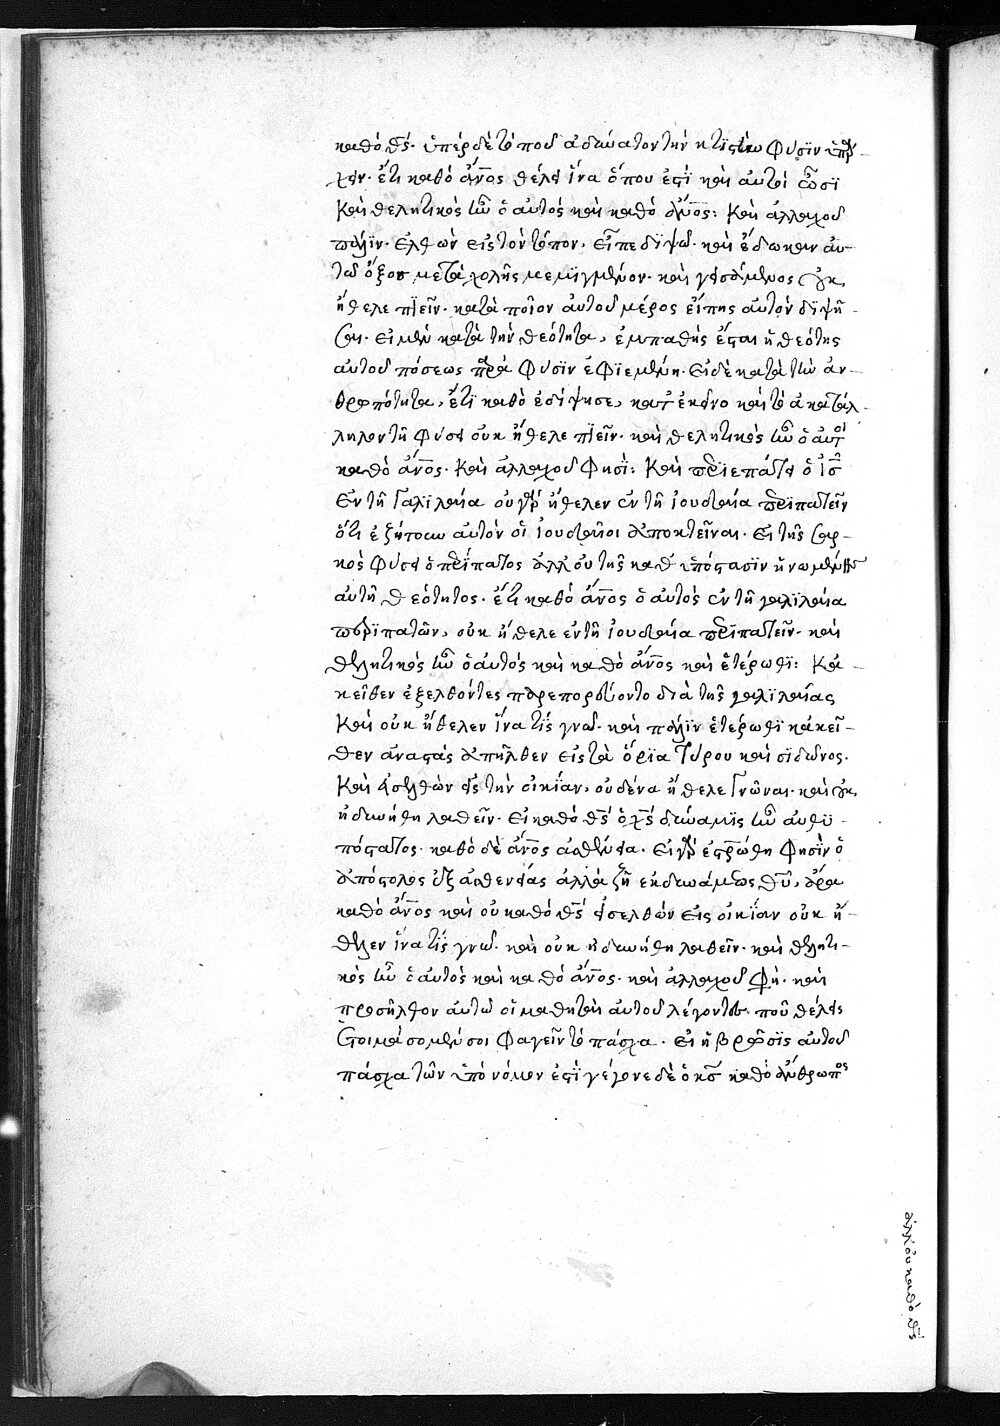 καθὸ θς̅· ὑπὲρ δὲ τόπου ἀδύνατον τὴν κτϊστὴν φύσϊν ὑπάρ-
χειν· ἔτι καθὸ ἄνο̅ς θέλει ἵνα ὅπου ἐστϊ καὶ αὐτοὶ ὦσϊ
Καὶ θελητικὸς ἦν ὁ αὐτὸς καὶ καθὸ ἄνο̅ς: Καὶ ἀλλαχοῦ
πάλϊν· ἐλθὼν εἰς τὸν τόπον, εἶπε διψῶ· καὶ ἔδωκαν αὐ-
τῶ ὄξος μετὰ χολῆς μεμϊγμένον· καὶ γευσάμενος οὐκ
ἤθελε πϊεῖν· κατὰ ποῖον αὐτοῦ μέρος εἴπης αὐτὸν δϊψῆ-
σαι· εἰ μὲν κατὰ τὴν θεότητα, ἐμπαθὴς ἔσται ἡ θεότης
αὐτοῦ πόσεως παρὰ φύσϊν ἐφϊεμένη· εἰ δὲ κατὰ τὴν ἀν-
θρωπότητα, ἔτϊ καθὸ ἐδίψησε, κατ' ἐκεῖνο καὶ τὸ ἀκατάλ-
ληλον τῆ φύσει οὐκ ἤθελε πϊεῖν· καὶ θελητικὸς ἦν ὁ αὐτὸς
καθὸ ἄνο̅ς· Καὶ ἀλλαχοῦ φησϊ: Καὶ περϊεπάτει ὁ ις̅
ἐν τῆ Γαλϊλαία οὐ γὰρ ἤθελεν ἐν τῆ ἰουδαία περϊπατεῖν
ὅτι ἐζήτουν αὐτὸν οἱ ἰουδαῖοι ἀποκτεῖναι· εἰ τῆς σαρ-
κὸς φύσει ὁ περίπατος ἀλλ' οὐ τῆς καθ' ὑπόστασϊν ἡνωμένης
αὐτῆ θεότητος· ἔτι καθὸ ἄνο̅ς ὁ αὐτὸς ἐν τῆ γαλϊλαία
περϊπατῶν, οὐκ ἤθελε ἐν τῆ ἰουδαία περϊπατεῖν· καὶ
θελητικὸς ἦν ὁ αὐτὸς καὶ καθὸ ἄνο̅ς καὶ ἑτέρωθϊ: Κἀ-
κεῖθεν ἐξελθόντες παρεπορεύοντο διὰ τῆς γαλϊλαίας
Καὶ οὐκ ἤθελεν ἵνα τϊς γνῶ· καὶ πάλϊν ἑτέρωθϊ κἀκεῖ-
θεν ἀναστὰς ἀπῆλθεν εἰς τὰ ὅρϊα Τύρου καὶ σϊδῶνος·
Καὶ εἰσελθὼν εἰς τὴν οἰκίαν, οὐδένα ἤθελε Γνῶναι· καὶ οὐκ
ἠδυνήθη λαθεῖν· εἰ καθὸ θς̅ ὁ χς̅ δύναμϊς ἦν αὐθϋ-
πόστατος· καθὸ δὲ ἄνο̅ς ἀσθένεια· εἰ γὰρ ἐσταυρώθη φησϊν ὁ
ἀπόστολος ἐξ ἀσθενείας ἀλλὰ ζῆ ἐκ δυνάμεως θυ̅, ἄρα
καθὸ ἄνο̅ς καὶ οὐ καθὸ θς̅ εἰσελθὼν εἰς οἰκίαν οὐκ ἤ-
θελεν ἵνα τϊς γνῶ· καὶ οὐκ ἠδυνήθη λαθεῖν· καὶ θελητι-
κὸς ἦν ὁ αὐτὸς καὶ καθὸ ἄνο̅ς· καὶ ἀλλαχοῦ φη· καὶ
προσῆλθον αὐτῶ οἱ μαθηταὶ αὐτοῦ λέγοντες· ποῦ θέλεις
ἑτοιμάσομέν σοι φαγεῖν τὸ πάσχα· εἰ ἡ βρῶσϊς αὐτοῦ
πάσχα τῶν ὑπὸ νόμον ἐστϊ γέγονε δὲ ὁ κς̅ καθὸ ἄνθρωπος
ἀλλ' οὐ καθὸ θς̅